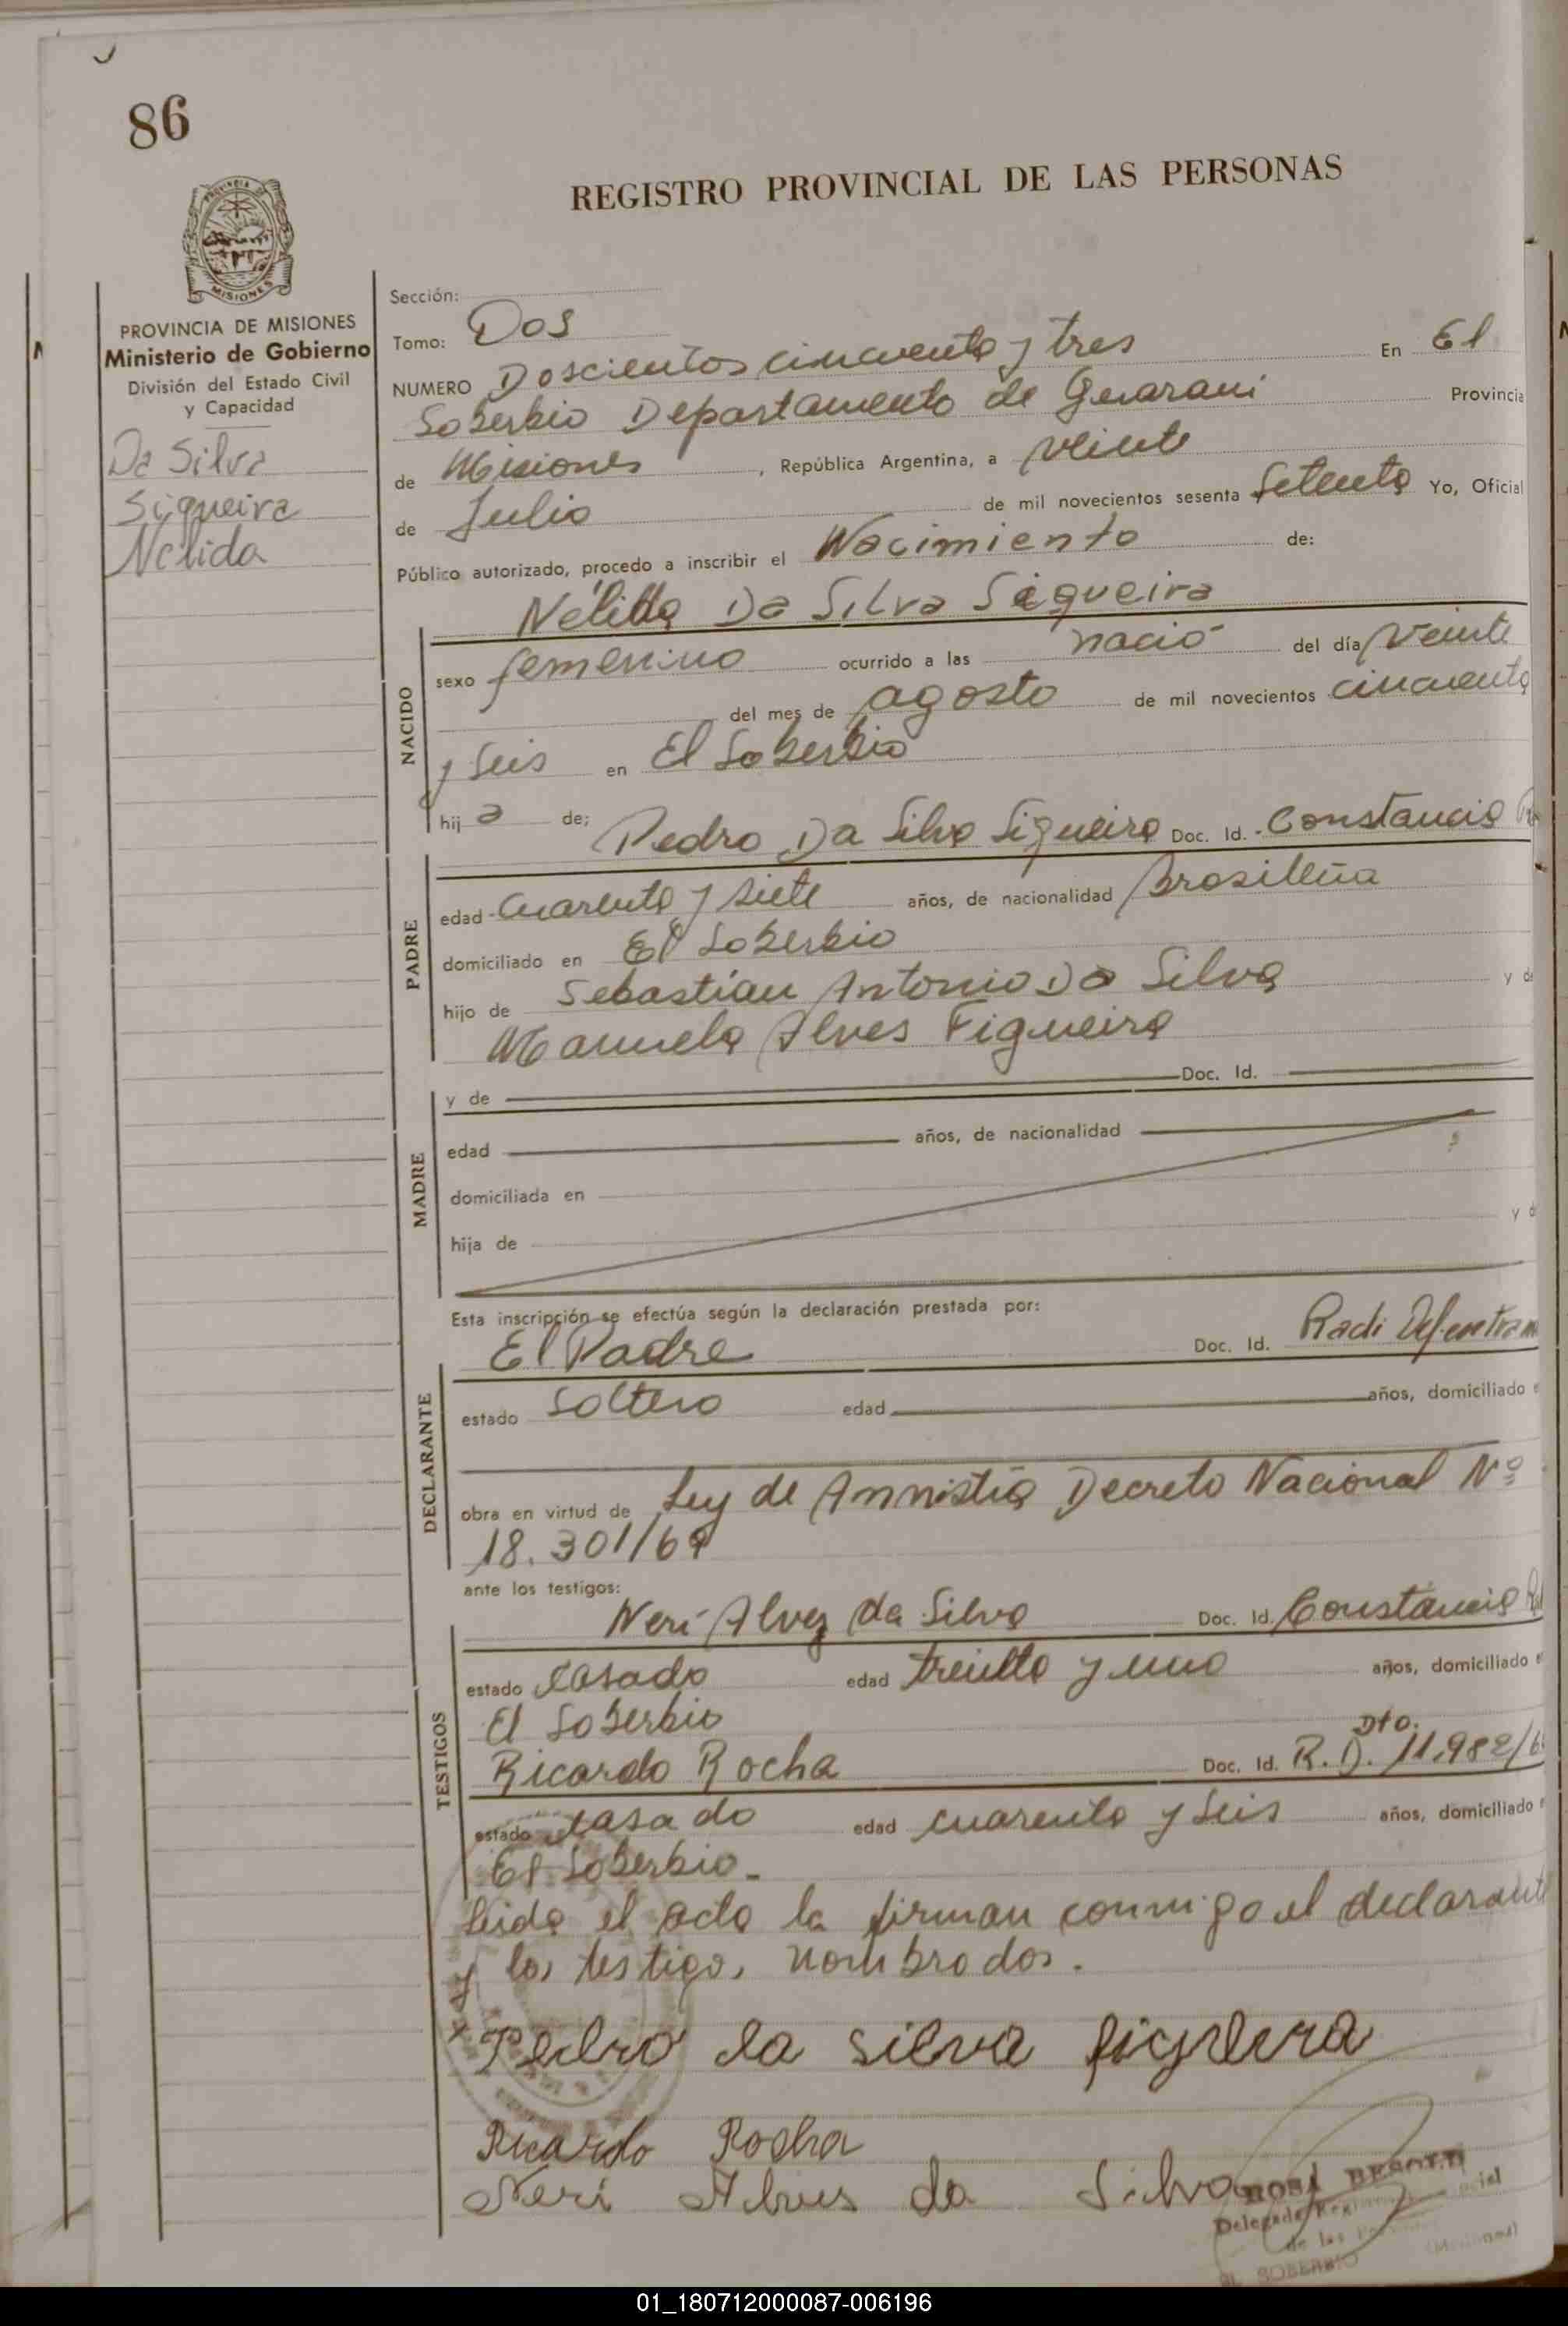 86
REGISTRO PROVINCIAL DE LAS PERSONAS
PROVINCIA DE
MISIONES
PROVINCIA DE MISIONES
Ministerio de Gobierno
División del Estado Civil
y Capacidad
Da Silva
Siqueira
Nélida
Sección:
Tomo: Dos
NUMERO Doscientos cincuenta y tres En El
Soberbio Departamento de Guarani Provincia
de Misiones, República Argentina, a veinte
de Julio de mil novecientos sesenta setenta Yo, Oficial
Público autorizado, procedo a inscribir el Nacimiento de:
Nélida Da Silva Siqueira
NACIDO
sexo femenino ocurrido a las nació del día veinte
del mes de agosto de mil novecientos cincuenta
y seis en El Soberbio
hija de; Pedro Da Silva Siqueira Doc. Id. Constancia
PADRE
edad cuarenta y siete años, de nacionalidad Brasileña
domiciliado en El Soberbio
hijo de Sebastían Antonio Da Silva y de
Manuela Alves Figueira
y de Doc. Id.
MADRE
edad años, de nacionalidad
domiciliada en
hija de y d
Esta inscripción se efectúa según la declaración prestada por:
El Padre Doc. Id. Radi Def. en tram
DECLARANTE
estado soltero edad años, domiciliado
obra en virtud de Ley de Amnistía Decreto Nacional Nº
18.301/69
ante los testigos:
Neri Alvez da Silva Doc. Id. Constancia
TESTIGOS
estado casado edad treinta y uno años, domiciliado
El Soberbio
Ricardo Rocha Doc. Id. R.D. Dto. 11.982/6
estado casado edad cuarenta y seis años, domiciliado
El Soberbio.
leida el acta la firman conmigo el declarante
y los testigos nombrados.
Pedro da silva figueira
Ricardo Rocha
Neri Alves da Silva
ROSA
Delegada
de las
EL SOBERBIO (Misiones)
01_180712000087-006196